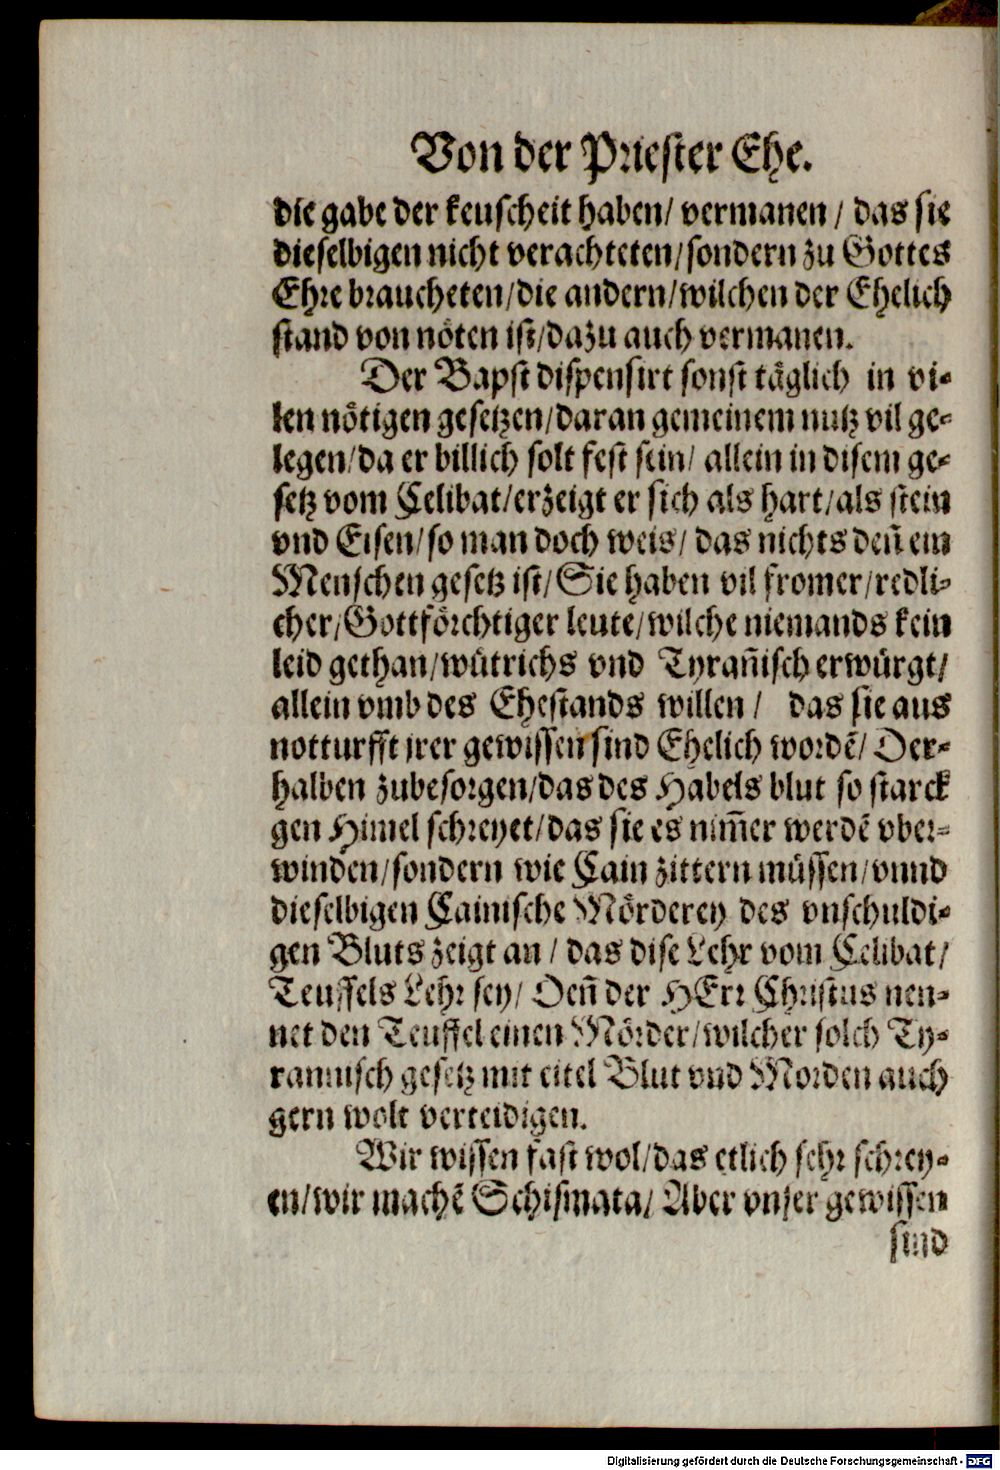 Von der Priester Ehe.
die gabe der keuscheit haben/ vermanen / das sie
dieselbigen nicht verachteten/sondern zu Gottes
Ehre braucheten/die andern/wilchen der Ehelich
stand von nöten ist/dazu auch vermanen.
Der Bapst dispensirt sonst täglich in vi-
len nötigen gesetzen/daran gemeinem nutz vil ge-
legen/da er billich solt fest sein/ allein in disem ge-
setz vom Celibat/erzeigt er sich als hart/als stein
vnd Eisen/so man doch weis/ das nichts deñ ein
Menschen gesetz ist/Sie haben vil fromer/redli-
cher/Gottförchtiger leute/wilche niemands kein
leid gethan/wütrichs vnd Tyrañisch erwürgt/
allein vmb des Ehestands willen / das sie aus
notturfft jrer gewissen sind Ehelich wordē/ Der-
halben zubesorgen/das des Habels blut so starck
gen Himel schreyet/das sie es nim̄er werdē vber-
winden/sondern wie Cain zittern müssen/vnnd
dieselbigen Cainische Mörderey des vnschuldi-
gen Bluts zeigt an / das dise Lehr vom Celibat/
Teuffels Lehr sey/ Deñ der HErr Christus nen-
net den Teuffel einen Mörder/wilcher solch Ty-
rannisch gesetz mit eitel Blut vnd Morden auch
gern wolt verteidigen.
Wir wissen fast wol/das etlich sehr schrey-
en/wir machē Schismata/ Aber vnser gewissen
sind
Digitalisierung gefördert durch die Deutsche Forschungsgemeinschaft - DFG